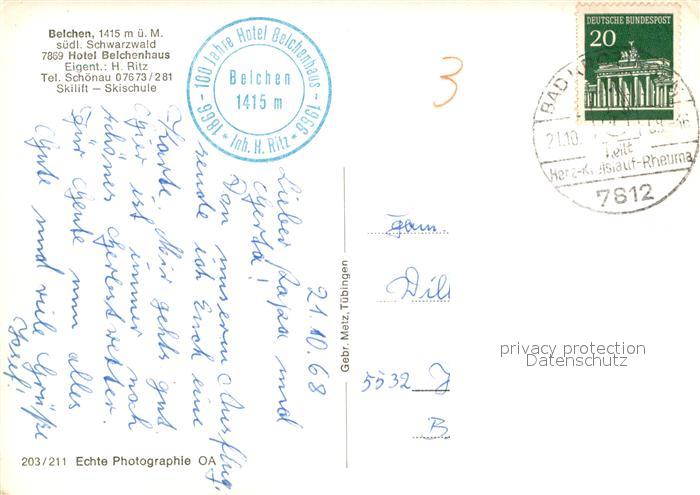 Belchen, 1415 m ü. M.
südl. Schwarzwald
7869 Hotel Belchenhaus
Eigent.: H. Ritz
Tel. Schönau 07673/281
Skilift – Skischule
1866 - 100 Jahre Hotel Belchenhaus - 1966
Belchen
1415 m
* Inh. H. Ritz *
3
DEUTSCHE BUNDESPOST
20
BAD
21.10.
heilt
Herz-Kreislauf-Rheuma
7812
21.10.68
Lieber Papa und
Gerta!
Von unserm Ausflug,
sende ich Euch eine
Karte. Mir gehts gut
Hier ist immer noch
schönes Herbstwetter.
Für Heute nun alles
Gute und viele Grüße
Josef!
Gebr. Metz, Tübingen
Fam.
Dill
5532 J
B
privacy protection
Datenschutz
203/211 Echte Photographie OA